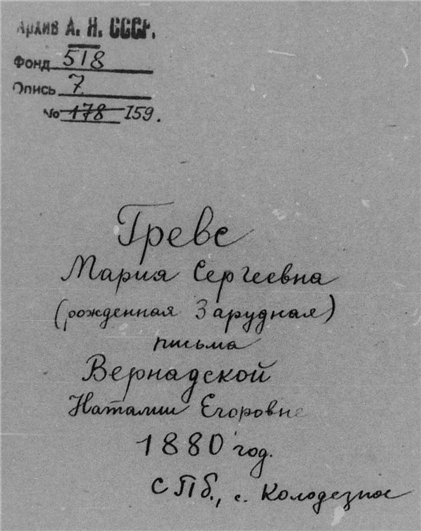 Архив А. Н. СССР.
Фонд 518
Опись 7
№ 178 159.
Гревс
Мария Сергеевна
(рожденная Зарудная)
письма
Вернадской
Наталии Егоровне
1880 год.
СПб., с. Колодезное